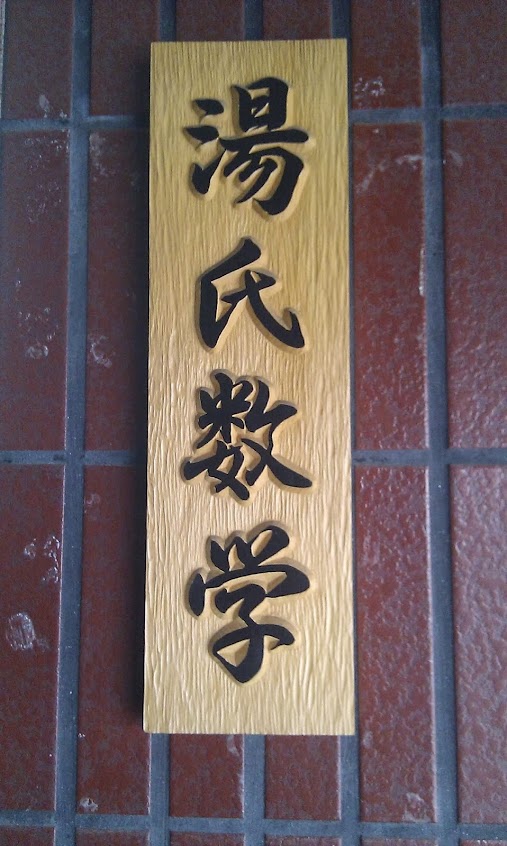 湯氏数学